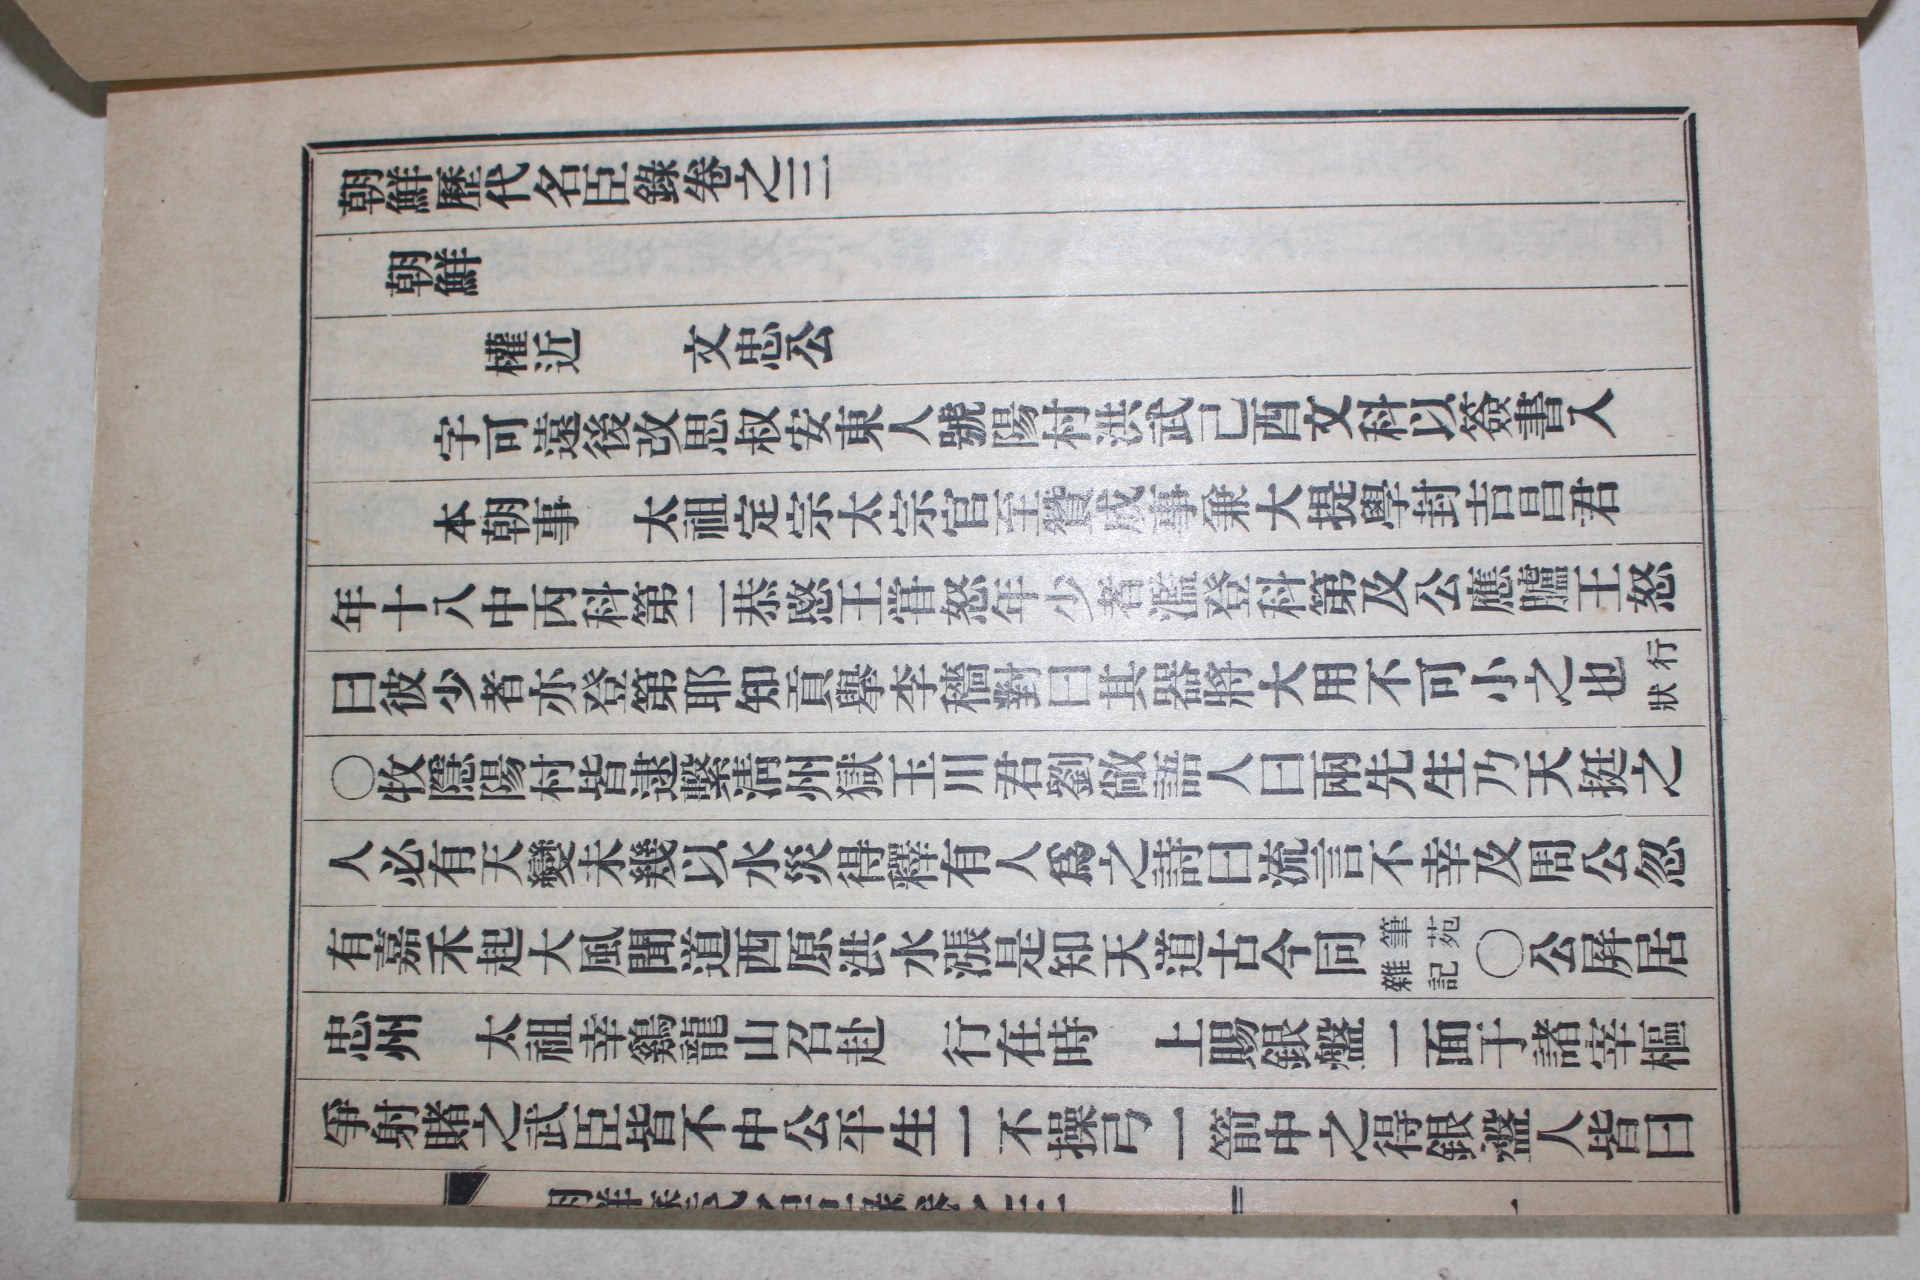 朝鮮歷代名臣錄卷之三
朝鮮
權近　　文忠公
字可遠後改思叔安東人號陽村洪武己酉文科以簽書入
本朝事　太祖定宗太宗官至贊成事兼大提學封吉昌君
年十八中丙科第二恭愍王嘗怒年少者濫登科第及公應臚王怒
曰彼少者亦登第耶知貢擧李穡對曰其器將大用不可小之也行狀
〇牧隱陽村皆逮繫淸州獄玉川君劉敞語人曰兩先生乃天挺之
人必有天變未幾以水災得釋有人爲之詩曰流言不幸及周公忽
有嘉禾起大風聞道西原洪水漲是知天道古今同筆苑雜記〇公屛居
忠州　太祖幸鷄龍山召赴　行在時　上賜銀盤一面于諸宰樞
爭射賭之武臣皆不中公平生一不操弓一箭中之得銀盤人皆曰
朝鮮歷代名臣錄卷之三　一